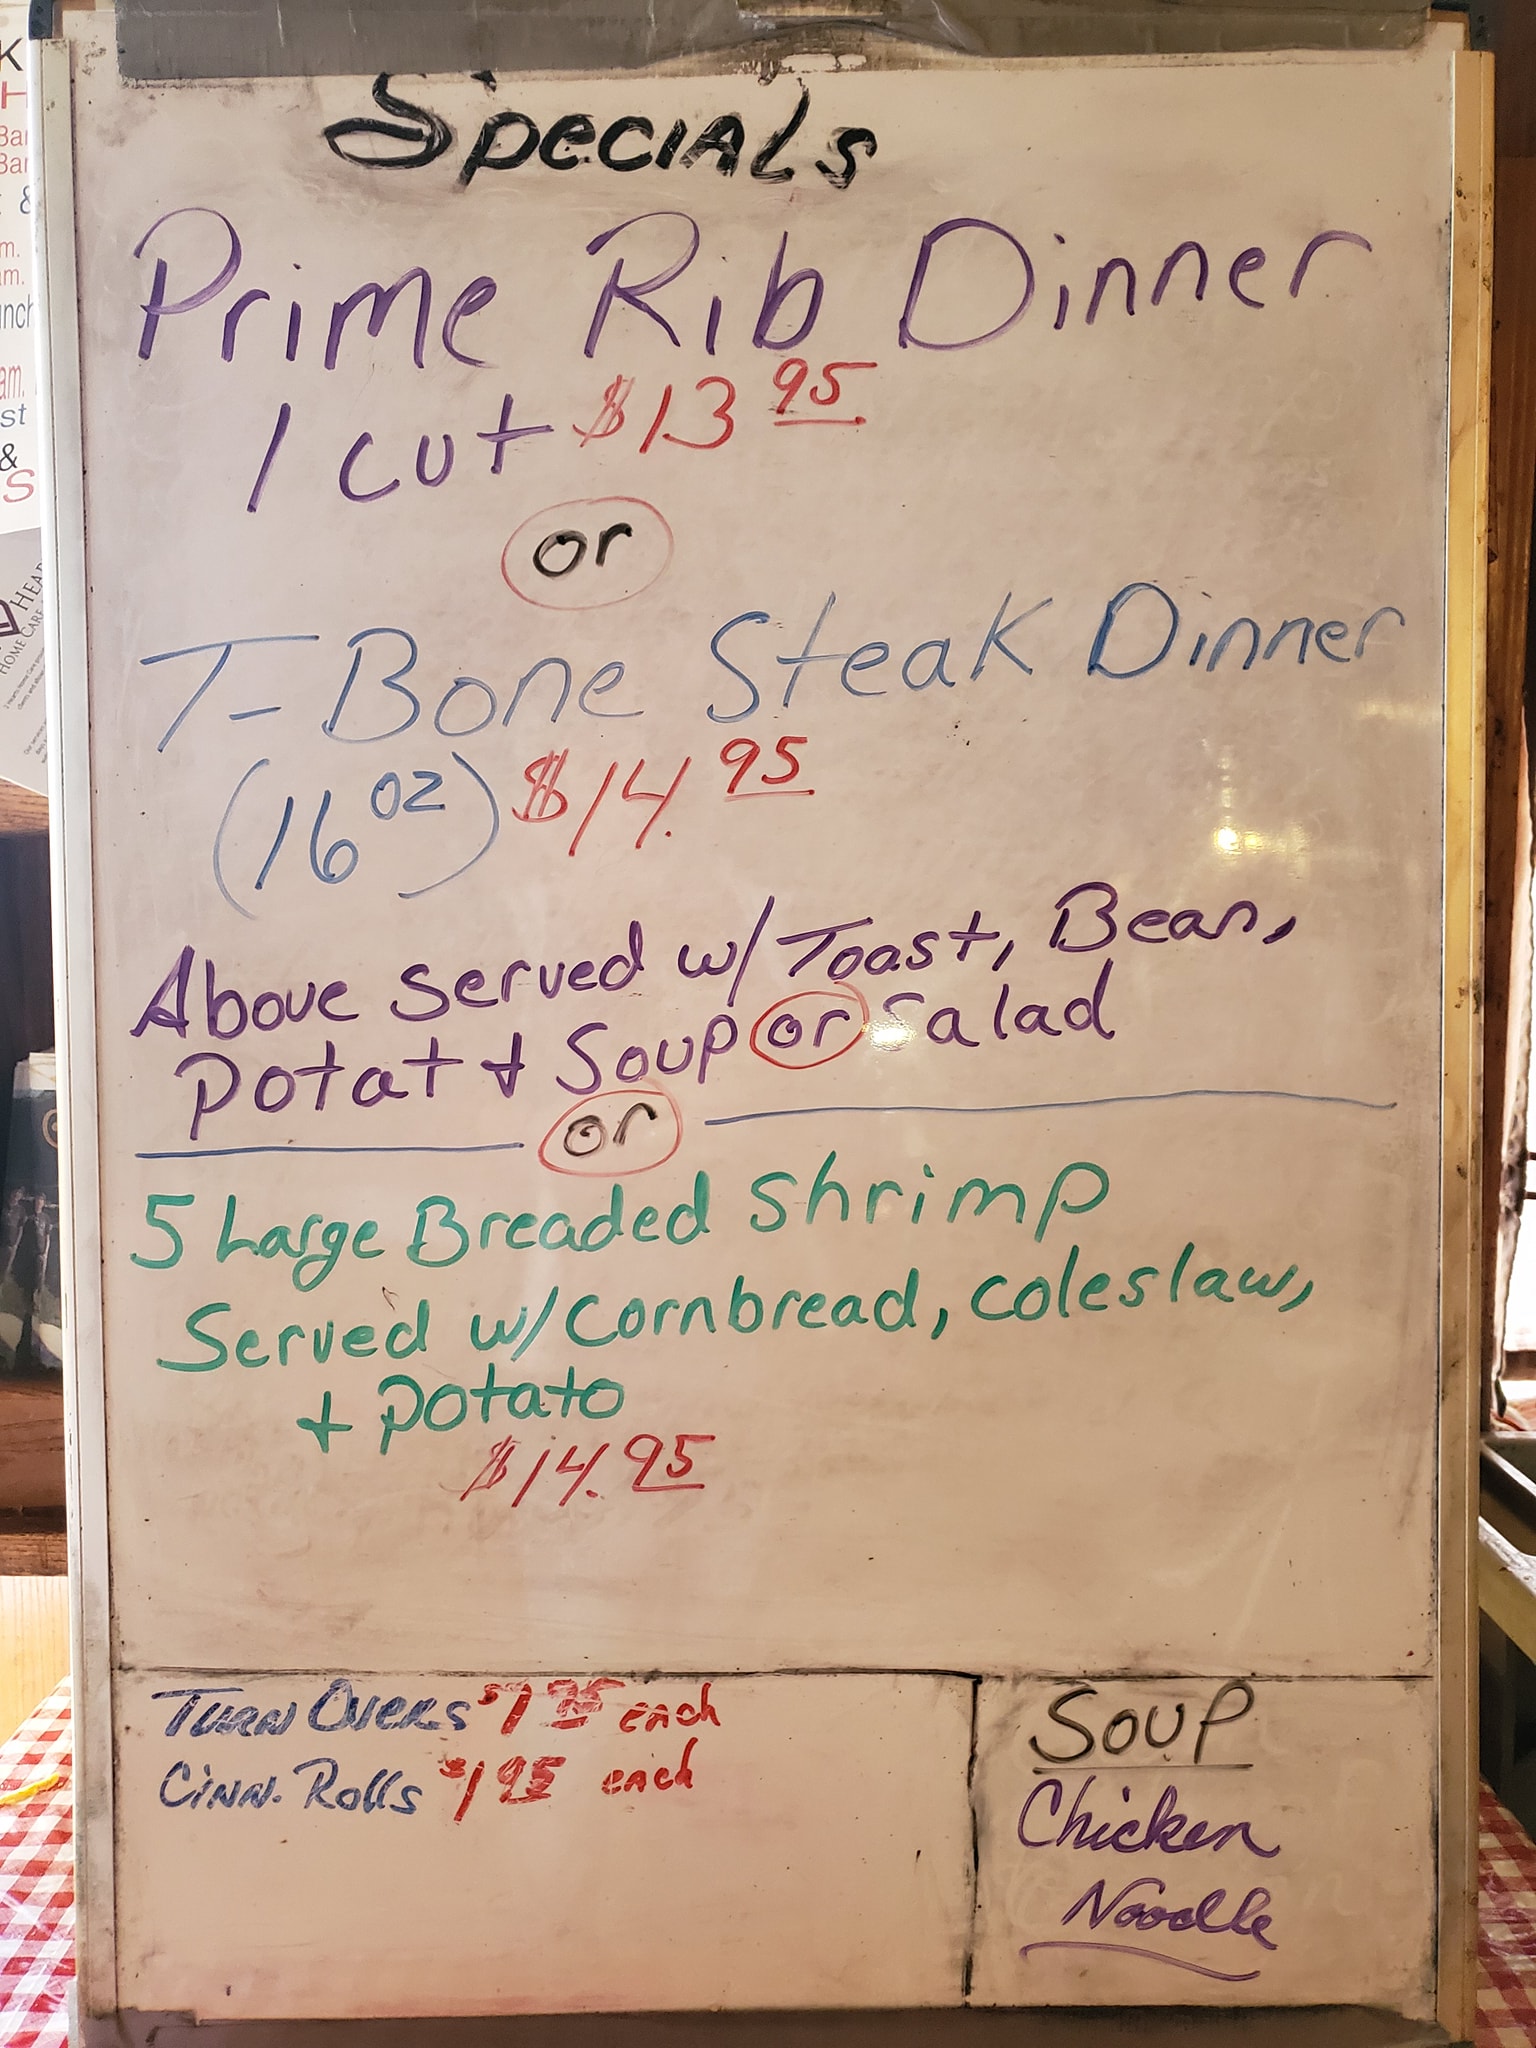 Specials
Prime Rib Dinner
1 cut $13 95
or
T-Bone Steak Dinner
(16 oz) $14. 95
Above Served w/ Toast, Bean,
Potat + Soup or Salad
or
5 Large Breaded Shrimp
Served w/ Cornbread, coleslaw,
+ Potato
$14.95
Turn Overs $1 each
Cinn. Rolls $1 95 each
Soup
Chicken
Noodle
K
H
&
m.
am.
am.
st
&
S
HOME CARE